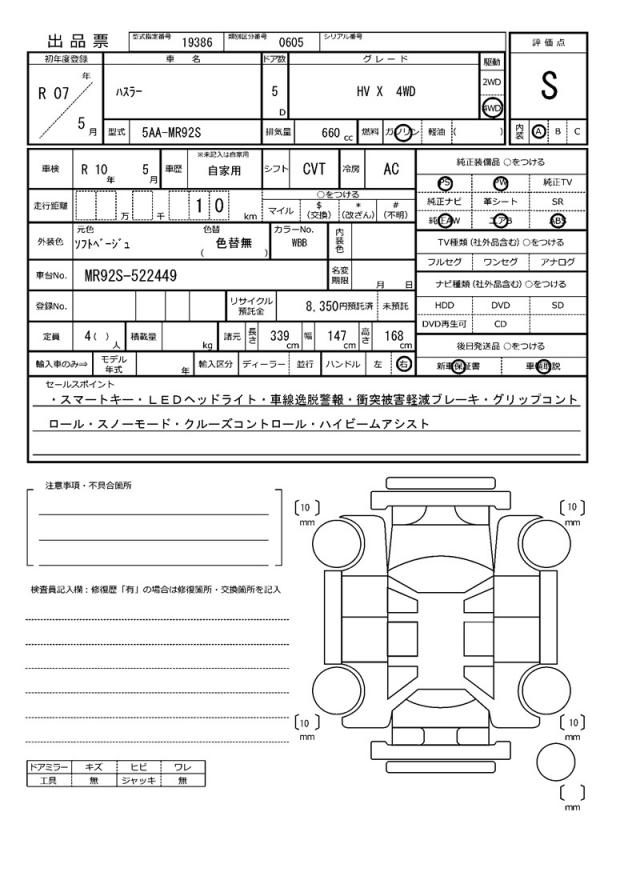 出品票 型式指定番号 19386 類別区分番号 0605 シリアル番号
初年度登録 車名 ドア数 グレード 駆動 評価点
R 07 年 5 月 ハスラー 5 D HV X 4WD 2WD 4WD S
型式 5AA-MR92S 排気量 660 cc 燃料 ガソリン 軽油 ( ) 内装 A B C
車検 R 10 年 5 月 車歴 ※未記入は自家用 自家用 シフト CVT 冷房 AC
走行距離 万 千 1 0 km ○をつける マイル $ (交換) * (改ざん) # (不明)
外装色 元色 ソフトベージュ 色替 ( 色替無 ) カラーNo. WBB 内装色
車台No. MR92S-522449 名変期限 月 日
登録No. リサイクル預託金 8,350円預託済 未預託
定員 4( ) 人 積載量 kg 諸元 長さ 339 cm 幅 147 cm 高さ 168 cm
輸入車のみ⇒ モデル年式 年 輸入区分 ディーラー 並行 ハンドル 左 右
純正装備品 ○をつける
PS PW 純正TV
純正ナビ 革シート SR
純正AW エアB ABS
TV種類 (社外品含む) ○をつける
フルセグ ワンセグ アナログ
ナビ種類 (社外品含む) ○をつける
HDD DVD SD
DVD再生可 CD
後日発送品 ○をつける
新車保証書 車輌取説
セールスポイント
・スマートキー・ＬＥＤヘッドライト・車線逸脱警報・衝突被害軽減ブレーキ・グリップコント
ロール・スノーモード・クルーズコントロール・ハイビームアシスト
注意事項・不具合箇所
検査員記入欄：修復歴「有」の場合は修復箇所・交換箇所を記入
ドアミラー キズ ヒビ ワレ
工具 無 ジャッキ 無
〔10〕 mm 〔10〕 mm
〔10〕 mm 〔10〕 mm
〔 〕 mm